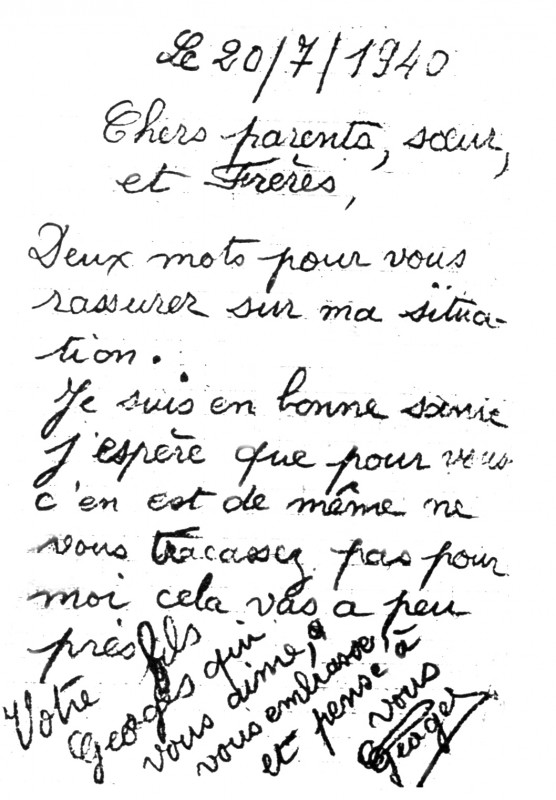 Le 20/7/1940
Chers parents, sœur,
et Frères,
Deux mots pour vous
rassurer sur ma situa-
tion.
Je suis en bonne santé
j'espère que pour vous
c'en est de même ne
vous tracassez pas pour
moi cela vas a peu
près
Votre fils
Georges qui
vous aime,
vous embrasse,
et pense à
vous
Georges